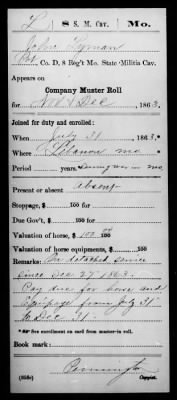 L 8 S. M. Cav. Mo.
John Lyman
Pvt., Co. D, 8 Reg't Mo. State Militia Cav.
Appears on
Company Muster Roll
for Nov & Dec, 1863.
Joined for duty and enrolled:
When July 31, 1863.*
Where Lebanon Mo
Period During war
Present or absent Absent
Stoppage, $ 100 for
Due Gov't, $ 100
Valuation of horse, $ 100 00/100
Valuation of horse equipments, $ 100
Remarks: On detached service
since Dec 27" 1863.
Pay due for horse and
Equipage from July 31"
to Dec 31"
* See enrollment on card from muster-in roll.
Book mark:
Pennington
Copyist.